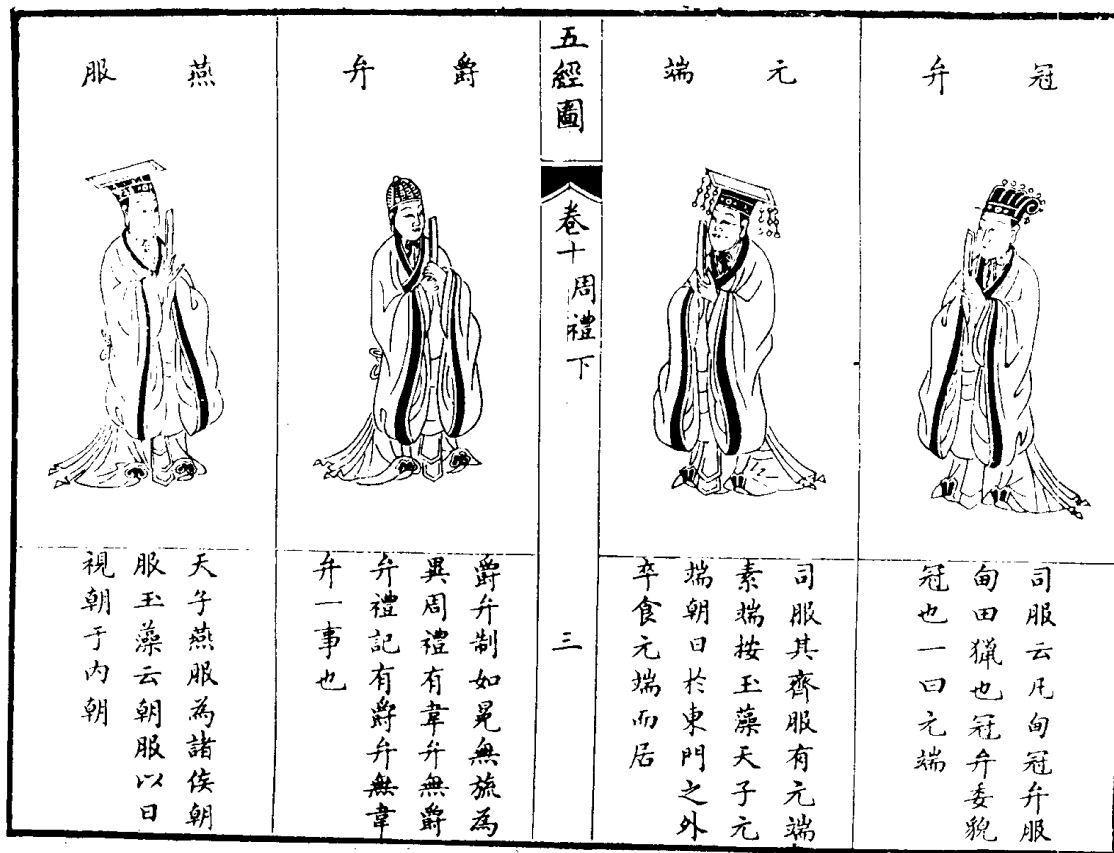 冠弁
司服云凡甸冠弁服
甸田獵也冠弁委貌
冠也一曰元端
元端
司服其齊服有元端
素端按玉藻天子元
端朝日於東門之外
卒食元端而居
五經圖
卷十周禮下
三
爵弁
爵弁制如冕無旒為
異周禮有韋弁無爵
弁禮記有爵弁無韋
弁一事也
燕服
天子燕服為諸侯朝
服玉藻云朝服以日
視朝于内朝